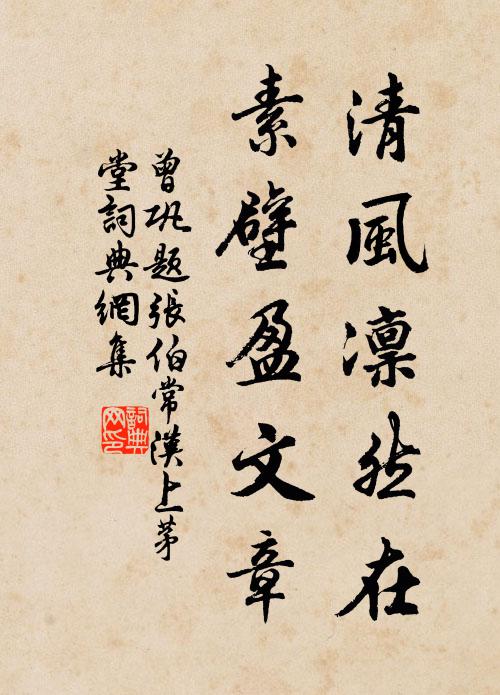 清風凛然在
素壁盈文章
曾巩題張伯常漢上茅
堂詞典網集
詞典网印